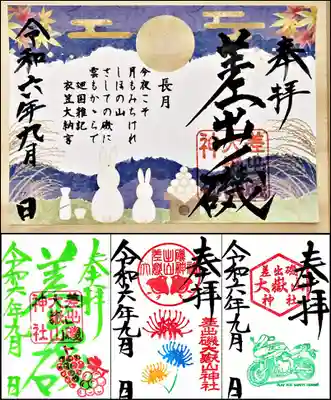 奉拝
差出磯
長月
今夜こそ
月もみちけれ
しほの山
さしての磯に
雲もかゝらで
廻国雑記
衣笠大納言
令和六年九月 日
奉拝
差出磯
大嶽山
神社
令和六年九月 日
奉拝
差出磯大嶽山神社
令和六年九月 日
奉拝
令和六年九月 日